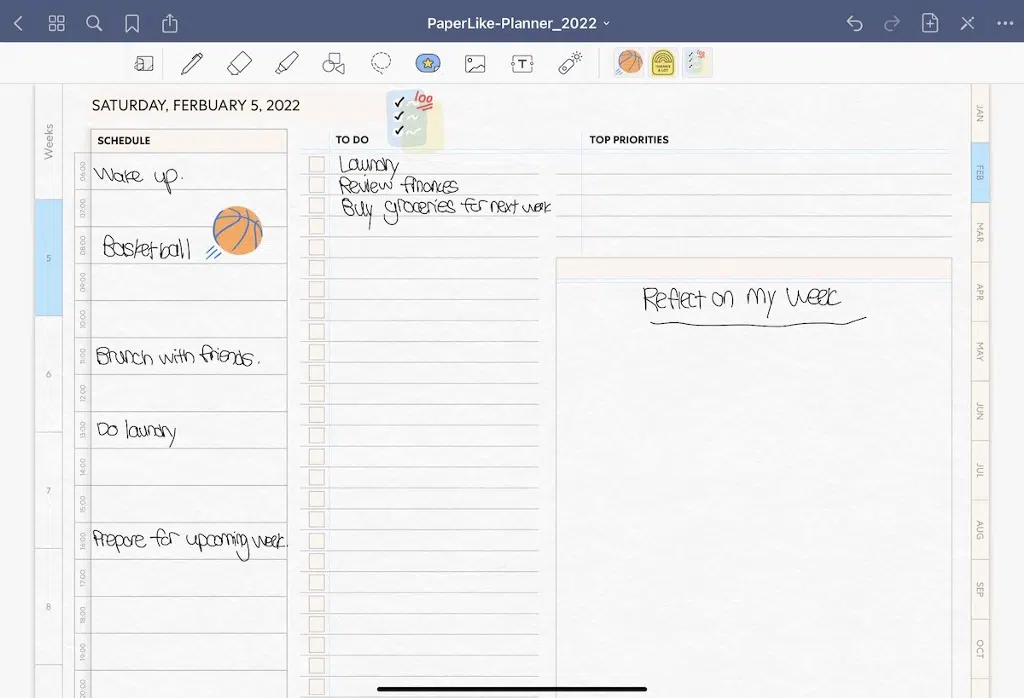 PaperLike-Planner_2022
SATURDAY, FERBUARY 5, 2022
100
Weeks
5
6
7
8
SCHEDULE
06:00 Wake up.
07:00
08:00 Basketball
09:00
10:00
11:00 Brunch with friends.
12:00
13:00 Do laundry
14:00
15:00
16:00 Prepare for upcoming week.
17:00
18:00
19:00
20:00
TO DO
Laundry
Review finances
Buy groceries for next week
TOP PRIORITIES
Reflect on my week
JAN
FEB
MAR
APR
MAY
JUN
JUL
AUG
SEP
OCT